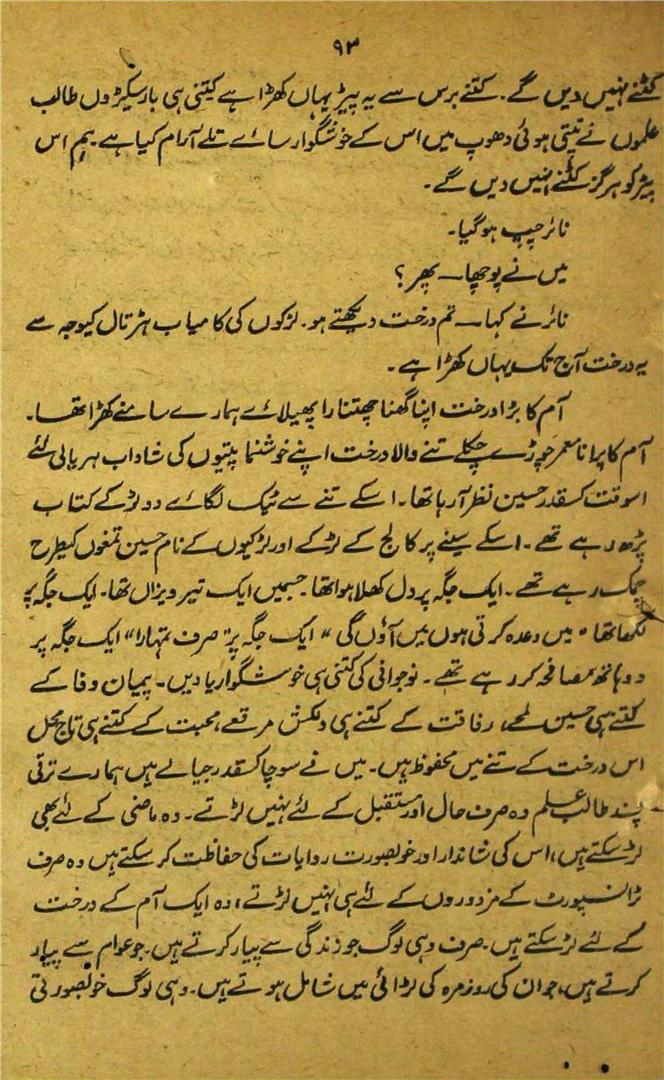 ۹۳
کٹنے نہیں دیں گے۔ کتنے برس سے یہ پیڑ یہاں کھڑا ہے کیتنی ہی بار سیکڑوں طالب
علموں نے تپتی ہوئی دھوپ میں اس کے خوشگوار سائے تلے آرام کیا ہے۔ ہم اس
پیڑ کو ہرگز کٹنے نہیں دیں گے۔
نائر چپ ہو گیا۔
میں نے پوچھا — پھر؟
نائر نے کہا — تم درخت دیکھتے ہو۔ لڑکوں کی کامیاب ہڑتال کیوجہ سے
یہ درخت آج تک یہاں کھڑا ہے۔
آم کا بڑا درخت اپنا گھنا چھتنارا پھیلائے ہمارے سامنے کھڑا تھا۔
آم کا پرانا معمر چوڑے چکلے تنے والا درخت اپنے خوشنما پتیوں کی شاداب ہریالی لئے
اسوقت کسقدر حسین نظر آ رہا تھا۔ اسکے تنے سے ٹیک لگائے دو لڑکے کتاب
پڑھ رہے تھے۔ اسکے سینے پر کالج کے لڑکے اور لڑکیوں کے نام حسین تمغوں کیطرح
چمک رہے تھے۔ ایک جگہ پر دل کھلا ہوا تھا۔ جسمیں ایک تیر ویزاں تھا۔ ایک جگہ پر
لکھا تھا "میں وعدہ کرتی ہوں میں آؤں گی" ایک جگہ پر "صرف تمہارا" ایک جگہ پر
دو ہاتھ مصافحہ کر رہے تھے۔ نوجوانی کی کتنی ہی خوشگوار یادیں۔ پیمان وفا کے
کتنے ہی حسین لمحے، رفاقت کے کتنے ہی دلکش مرقعے، محبت کے کتنے ہی تاج محل
اس درخت کے تنے میں محفوظ ہیں۔ میں نے سوچا کسقدر جیالے ہیں ہمارے ترقی
پسند طالب علم وہ صرف حال اور مستقبل کے لئے نہیں لڑتے۔ وہ ماضی کے لئے بھی
لڑ سکتے ہیں، اس کی شاندار اور خوبصورت روایات کی حفاظت کر سکتے ہیں وہ صرف
ٹرانسپورٹ کے مزدوروں کے لئے ہی نہیں لڑتے، وہ ایک آم کے درخت
کے لئے لڑ سکتے ہیں۔ صرف وہی لوگ جو زندگی سے پیار کرتے ہیں۔ جو عوام سے پیار
کرتے ہیں، جو ان کی روزمرہ کی لڑائی میں شامل ہوتے ہیں۔ وہی لوگ خوبصورتی